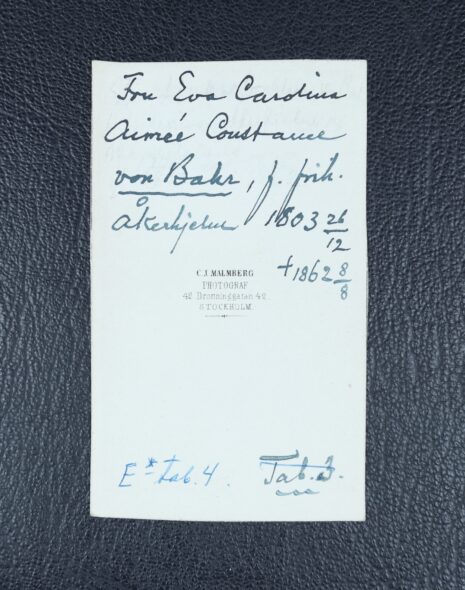 Fru Eva Carolina
Aimeé Constance
von Bahr, f. frih.
Åkerhjelm 1803 26/12
† 1862 8/8
C. J. MALMBERG
PHOTOGRAF
42 Dronninggatan 42
STOCKHOLM.
E* tab. 4.
Tab. 3.